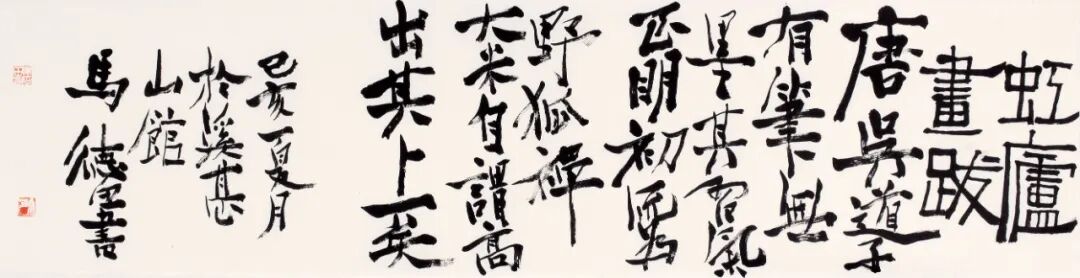 虹廬
畫跋
唐吳道子
有筆無
墨其氣
明初為
野狐禪
大米自謂高
出其上矣
己亥夏月
於溪
山館
馬德書